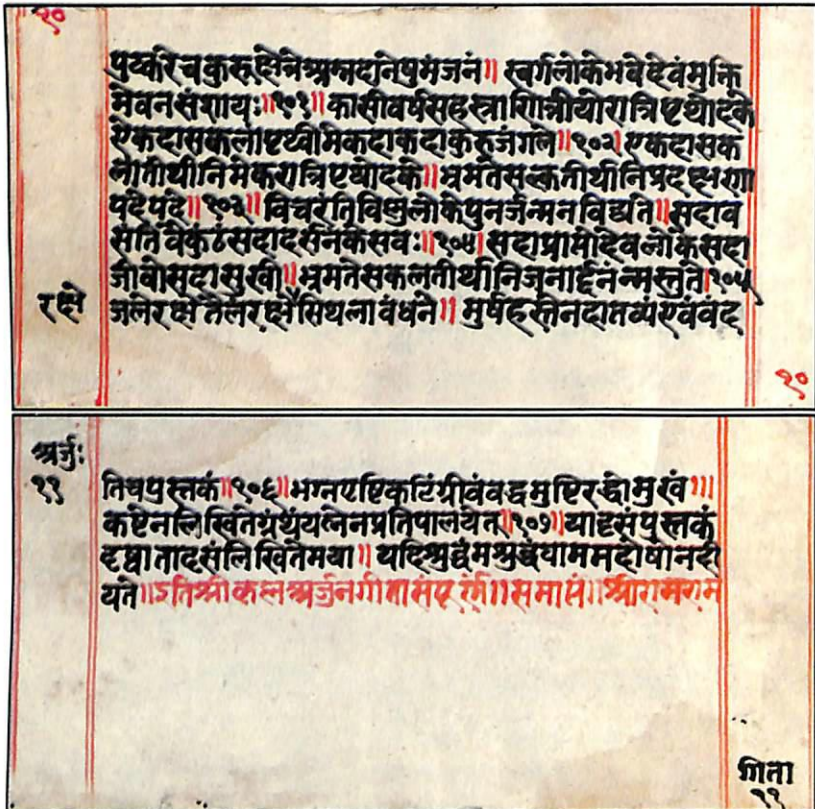 १०
पुष्करेचकुरुक्षेत्रेश्रमदानेपुमंजनं॥ स्वर्गलोकेभवेदेवंमुक्ति
मेवनसंशायः॥१०१॥ कासीवर्षसहस्त्राणित्रीयोरात्रिपृथोदके
ऐकदासकलापृथ्वीमेकदाकदाकुरुजंगले॥१०२॥ एकदासक
लातीर्थानिमेकरात्रिपृथोदके॥ भ्रमतेसत्कतीर्थानिप्रदक्षणा
पदेपदे॥१०३॥ विचरतिविष्णुलोकेपुनर्जन्मनविद्यते॥ सदाव
संतिवैकुंठंसदादर्सनकेसवः॥१०४॥ सदाप्राप्तोदेवलोकंसदा
जीवोसदासुखी॥ भ्रमतेसकलतीर्थानिजनार्द्दनन्मस्तुते।१०५
रक्षे
जलेरक्षेतैलेरक्षेसिथलावंधने॥ मुर्षहस्तेनदातव्यंएवंवद
१०
अर्जुः
११
तिचपुस्तकं॥१०६॥ भग्नपृष्टिकटिंग्रीवंवद्धमुष्टिरद्धोमुखं॥
कष्टेनलिखितंग्रंथंयत्नेनप्रतिपालयेत्॥१०७॥ यादृसंपुस्तकं
दृष्वातादृसंलिखितंमया॥ यदिशुद्धंमशुद्धंवाममदोषोनदी
यते॥ इतिश्रीकलअर्जुनगीतासंपूर्णं॥ समाप्तं॥ श्रीरामराम
गिता
११